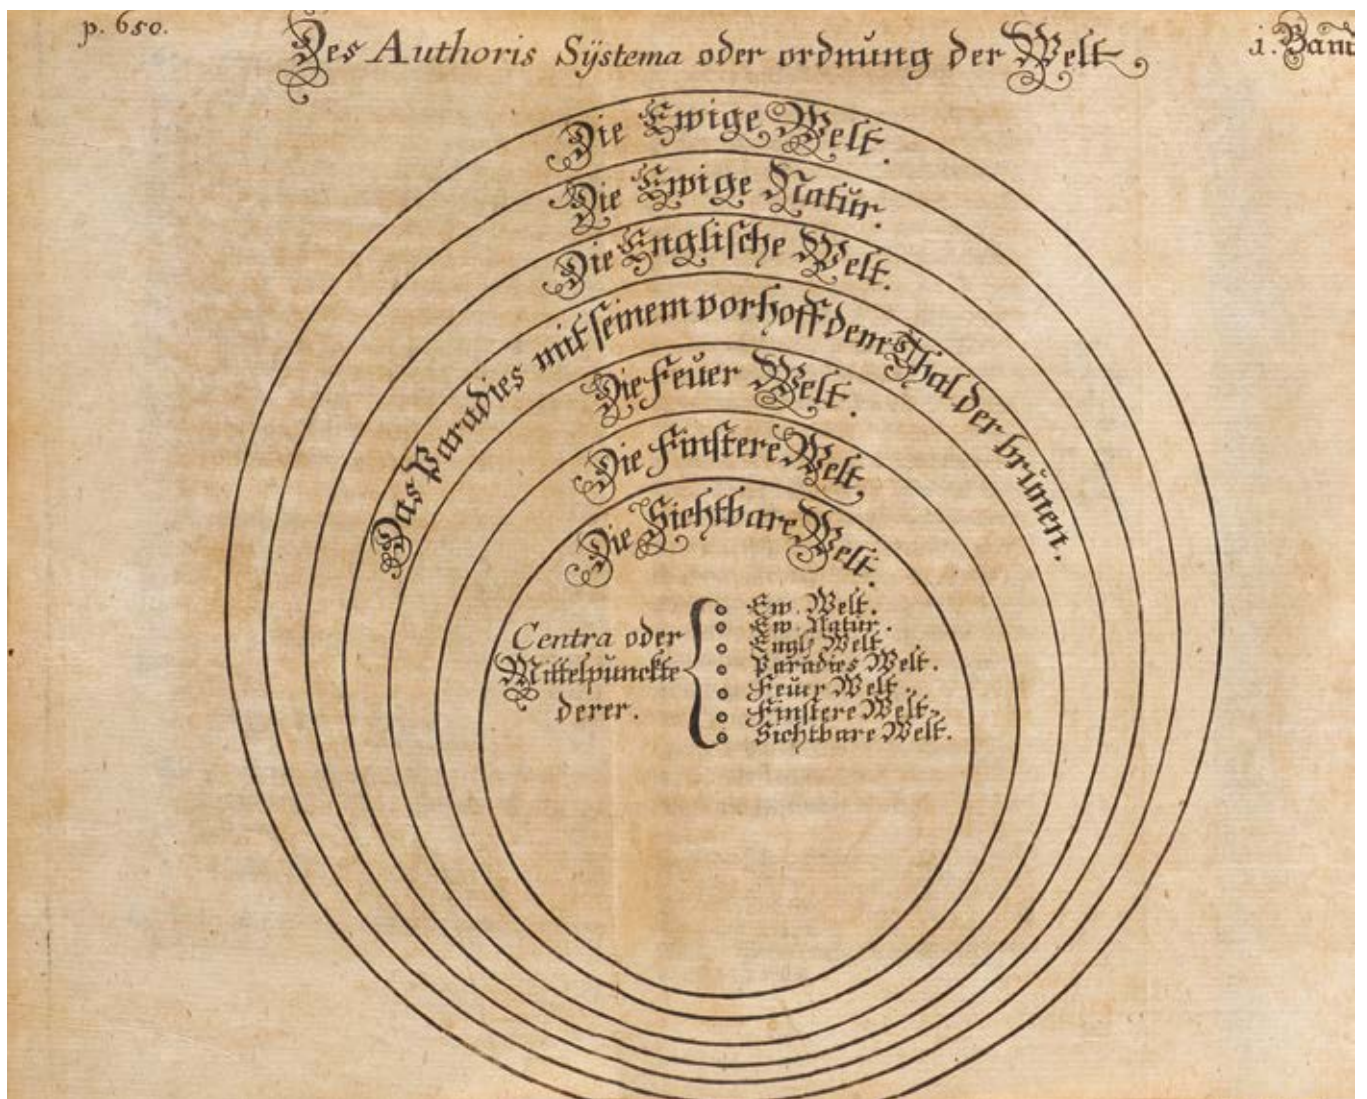 p. 650.
Des Authoris Sÿstema oder ordnung der Welt.
1. Band
Die Ewige Welt.
Die Ewige Natur.
Die Englische Welt.
Das Paradies mit seinem vorhoff dem Thal der brunen.
Die Feuer Welt.
Die Finstere Welt,
Die Sichtbare Welt.
Centra oder
Mittelpunckte
derer.
Ew. Welt.
Ew. Natur.
Engls Welt
Paradies Welt.
Feuer Welt.
Finstere Welt.
Sichtbare Welt.